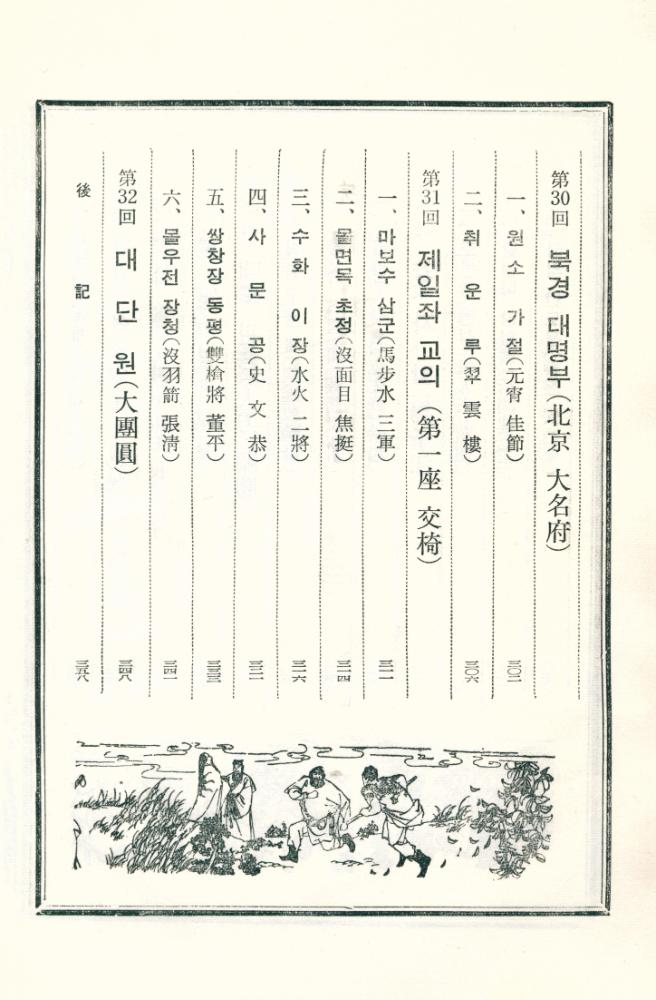 第30回 북경 대명부(北京 大名府)
一、원소 가절(元宵 佳節) 三〇二
二、취운루(翠雲樓) 三〇六
第31回 제일좌 교의(第一座 交椅)
一、마보수 삼군(馬步水 三軍) 三一一
二、몰면목 초정(沒面目 焦挺) 三一四
三、수화 이장(水火 二將) 三一六
四、사문공(史文恭) 三二一
五、쌍창장 동평(雙槍將 董平) 三三三
六、몰우전 장청(沒羽箭 張淸) 三四一
第32回 대단원(大團圓) 三四八
後記 三五八